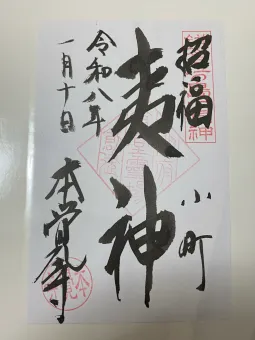 招福
夷神
小町
令和八年
一月十日
本覚寺